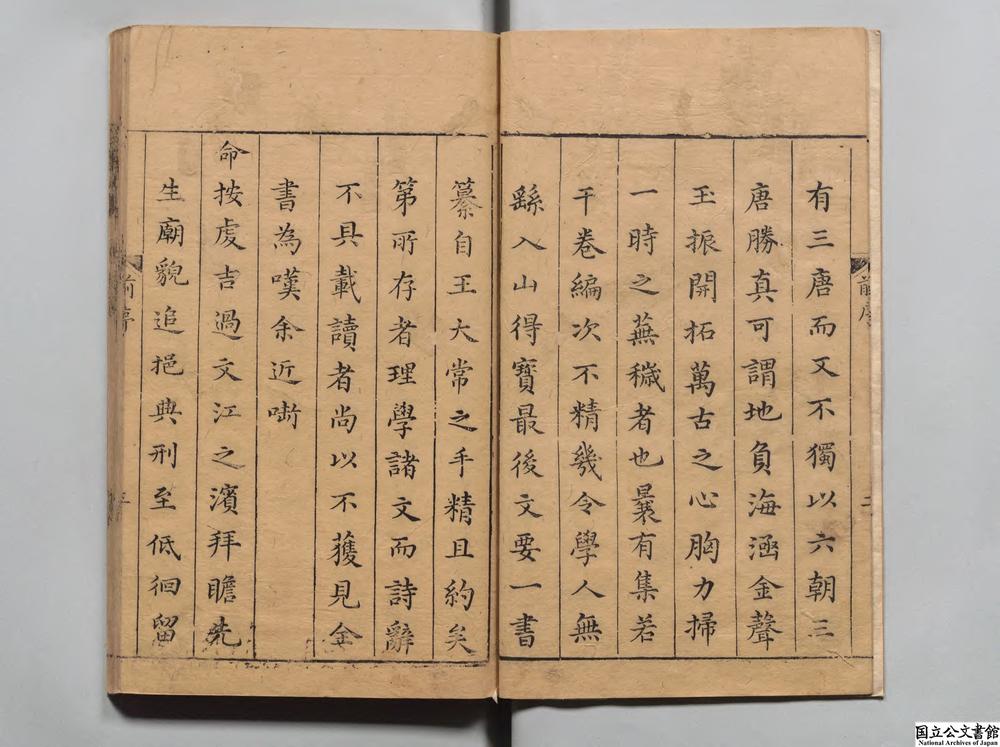 有三唐而又不獨以六朝三
唐勝真可謂地負海涵金聲
玉振開拓萬古之心胸力掃
一時之蕪穢者也曩有集若
干卷編次不精幾令學人無
繇入山得寶最後文要一書
纂自王大常之手精且約矣
第所存者理學諸文而詩辭
不具載讀者尚以不獲見金
書為嘆余近㗫
命按虔吉過文江之濱拜瞻先
生廟貌追挹典刑至低徊留
前序
二
前序
三
国立公文書館
National Archives of Japan